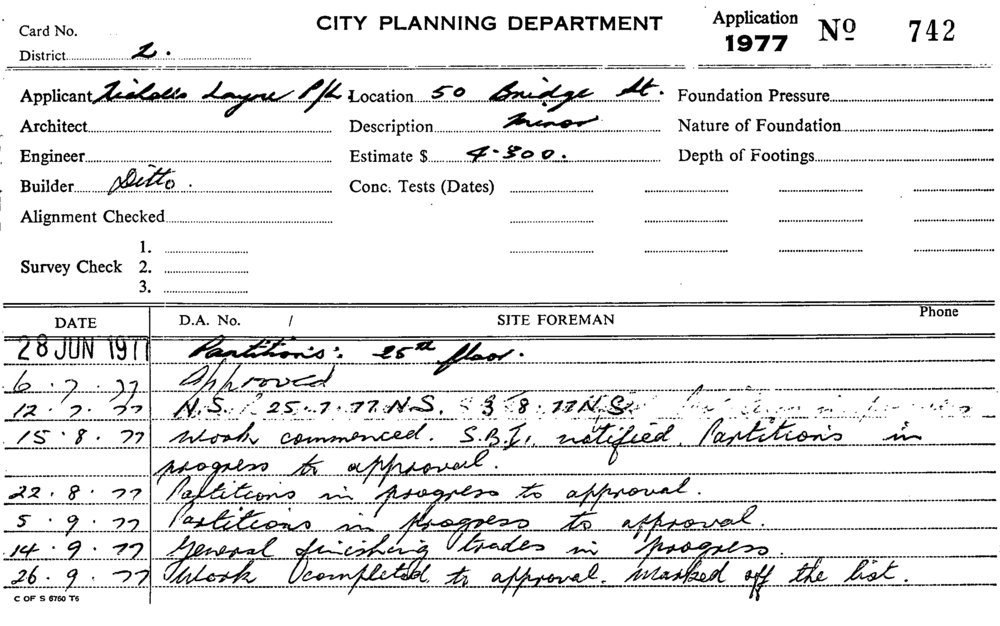 CITY PLANNING DEPARTMENT
Application 1977 Nº 742
Card No.
District 2.
Applicant Layne P/L. Location 50 Bridge St. Foundation Pressure
Architect Description Minor Nature of Foundation
Engineer Estimate $ 4-300. Depth of Footings
Builder Ditto. Conc. Tests (Dates)
Alignment Checked
Survey Check 1.
2.
3.
DATE D.A. No. / SITE FOREMAN Phone
28 JUN 1977 Partitions: 25th floor.
6.7.77 Approved
12.7.77 N.S. 25.7.77 N.S. 8.77 N.S.
15.8.77 Work commenced. S.B.I. notified. Partitions in
progress to approval.
22.8.77 Partitions in progress to approval.
5.9.77 Partitions in progress to approval.
14.9.77 General finishing trades in progress.
26.9.77 Work completed to approval. Marked off the list.
C OF S 6750 T6